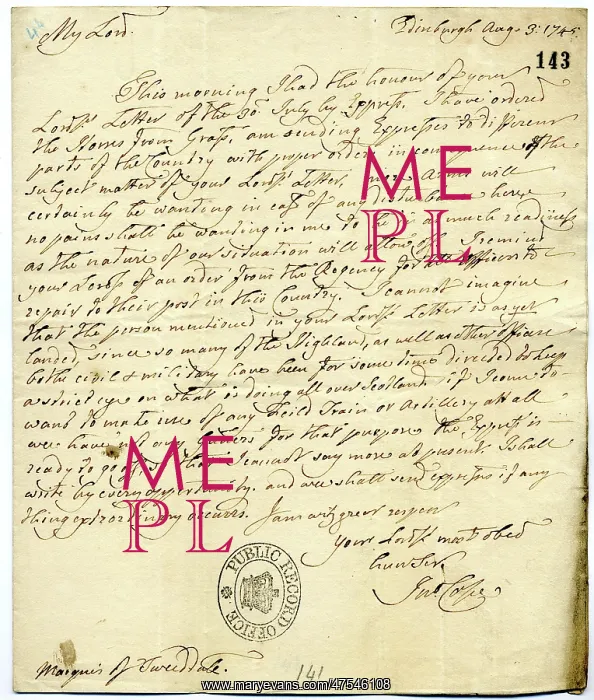 Edinburgh Augt. 3: 1745.
My Lord
143
This morning I had the honour of your
Lordp's Letter of the 30. July by Express. I have ordered
the Horses from Grass, am sending Expresses to different
parts of the Country with proper orders in consequence of the
subject matter of your Lordps Letter, Arms will
certainly be wanting in case of any disturbance here,
no pains shall be wanting in me to as much readiness
as the nature of our situation will allow of. I remind
your Lordp of an order from the Regency for officers to
repair to their post in this Country. I cannot imagine
that the person mentioned in your Lordps Letter is as yet
landed, since so many of the Highland, as well as other officers
both civil & military have been for some time directed to keep
a strict eye on what is doing all over Scotland. if I come to
want to make use of any feild Train or Artillery at all
we have not any for that purpose. the Express is
ready to go I cannot say more at present. I shall
write by every opportunity. and we shall send express if any
thing extraordinary occurrs. I am with great respect
your Lordps most obed
hum Ser.
Jno. Cope
PUBLIC RECORD OFFICE
Marquis of Tweeddale.
141
ME
PL
ME
PL
www.maryevans.com/47546108